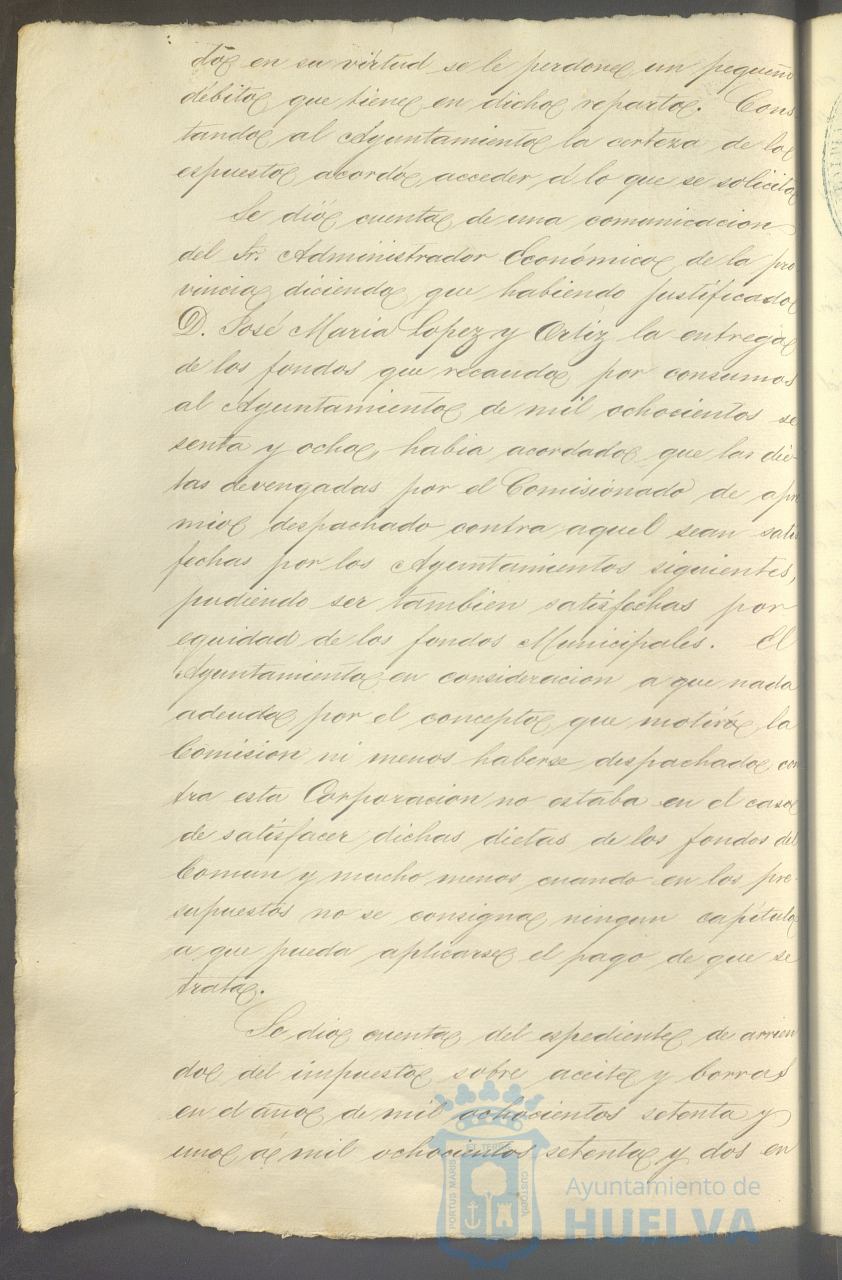 do en su virtud se le perdone un pequeño
débito que tiene en dicho reparto. Cons
tando al Ayuntamiento la certeza de lo
espuesto acordó acceder á lo que se solicita
Se dió cuenta de una comunicacion
del Sr. Administrador Económico de la pro
vincia diciendo que habiendo justificado
D. José Maria Lopez y Ortiz la entrega
de los fondos que recaudo por consumos
al Ayuntamiento de mil ochocientos se
senta y ocho, habia acordado que las die-
tas devengadas por el Comisionado de apre
mio despachado contra aquel sean satis
fechas por los Ayuntamientos siguientes,
pudiendo ser tambien satisfechas por
equidad de los fondos Municipales. El
Ayuntamiento en consideracion a que nada
adeuda por el concepto que motivó la
Comision ni menos haberse despachado con
tra esta Corporacion no estaba en el caso
de satisfacer dichas dietas de los fondos del
Comun y mucho menos cuando en los pre-
supuestos no se consigna ningun capítulo
a que pueda aplicarse el pago de que se
trata.
Se dio cuenta del espediente de arrien
do del impuesto sobre aceite y borras
en el año de mil ochocientos setenta y
uno á mil ochocientos setenta y dos en
PORTUS MARIS
ET TERRE
CUSTODIA
Ayuntamiento de
HUELVA